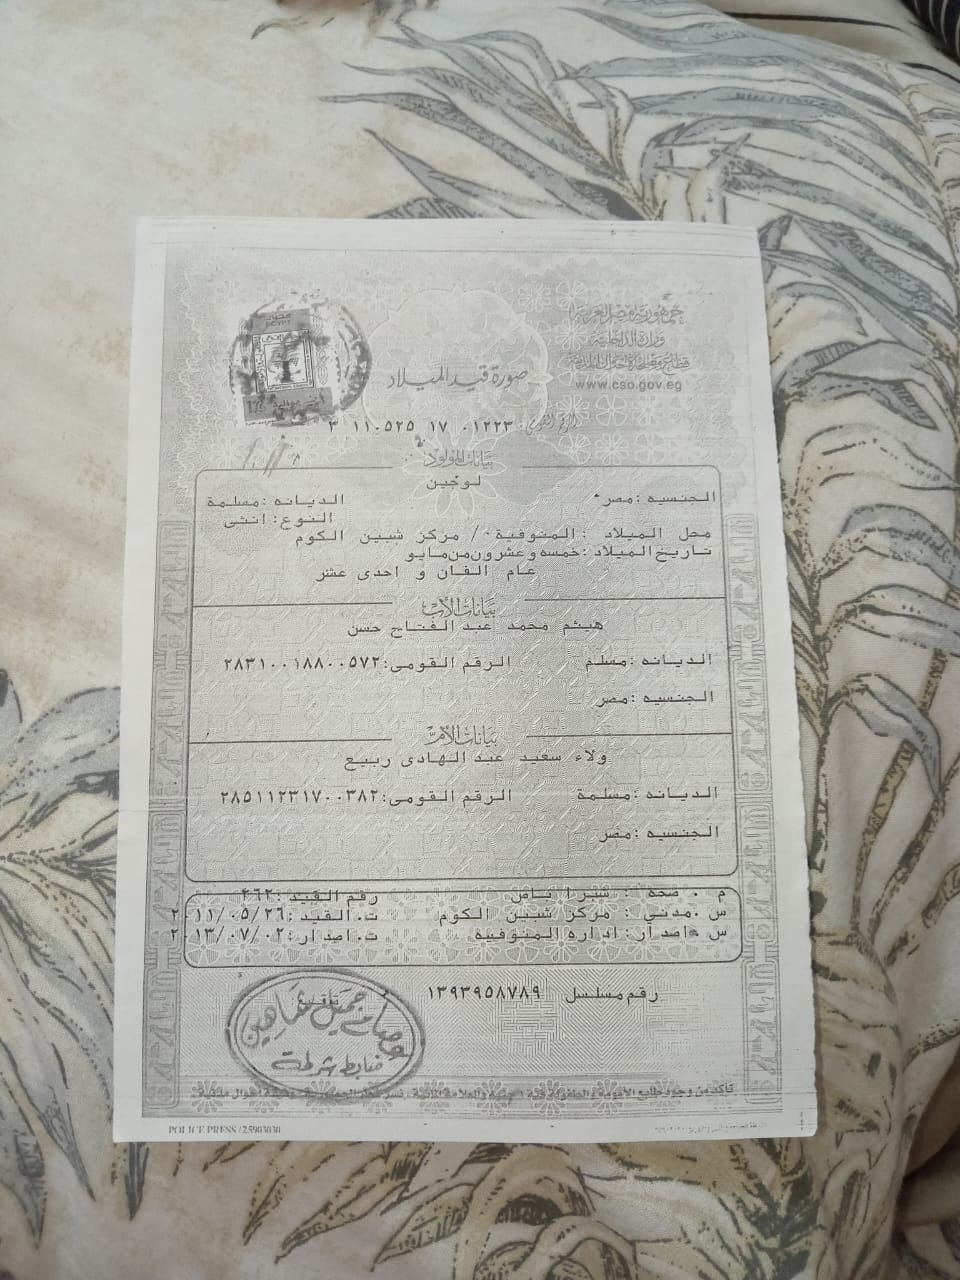 جمهورية مصر العربية
وزارة الداخلية
قطاع مصلحة الأحوال المدنية
www.cso.gov.eg
مصر
EGYPT
صورة قيد الميلاد
الرقم القومي: ٣ ١١٠٥٢٥ ١٧ ٠١٢٢٣
بيانات المولود
لوجين
الجنسيه : مصر
الديانه : مسلمة
النوع : انثى
محل الميلاد : المنوفية / مركز شبين الكوم
تاريخ الميلاد : خمسه وعشرون من مايو
عام الفان و احدى عشر
بيانات الأب
هيثم محمد عبد الفتاح حسن
الديانه : مسلم الرقم القومى : ٢٨٣١٠٠١٨٨٠٠٥٧٢
الجنسيه : مصر
بيانات الأم
ولاء سعيد عبد الهادى ربيع
الديانه : مسلمة الرقم القومى : ٢٨٥١١٢٣١٧٠٠٣٨٢
الجنسيه : مصر
م . صحه : شبرا باص رقم القيد : ٢٦٢
س . مدني : مركز شبين الكوم ت . القيد : ٢٠١١/٠٥/٢٦
س اصدار : اداره المنوفيه ت . اصدار : ٢٠١٣/٠٧/٠٢
رقم مسلسل ١٣٩٣٩٥٨٧٨٩
توقيع
عصام جميل شاهين
ضابط شرطة
تأكد من وجود طابع الأمومة والطفولة فئة جنيه والعلامة المائية
POLICE PRESS / 25903030